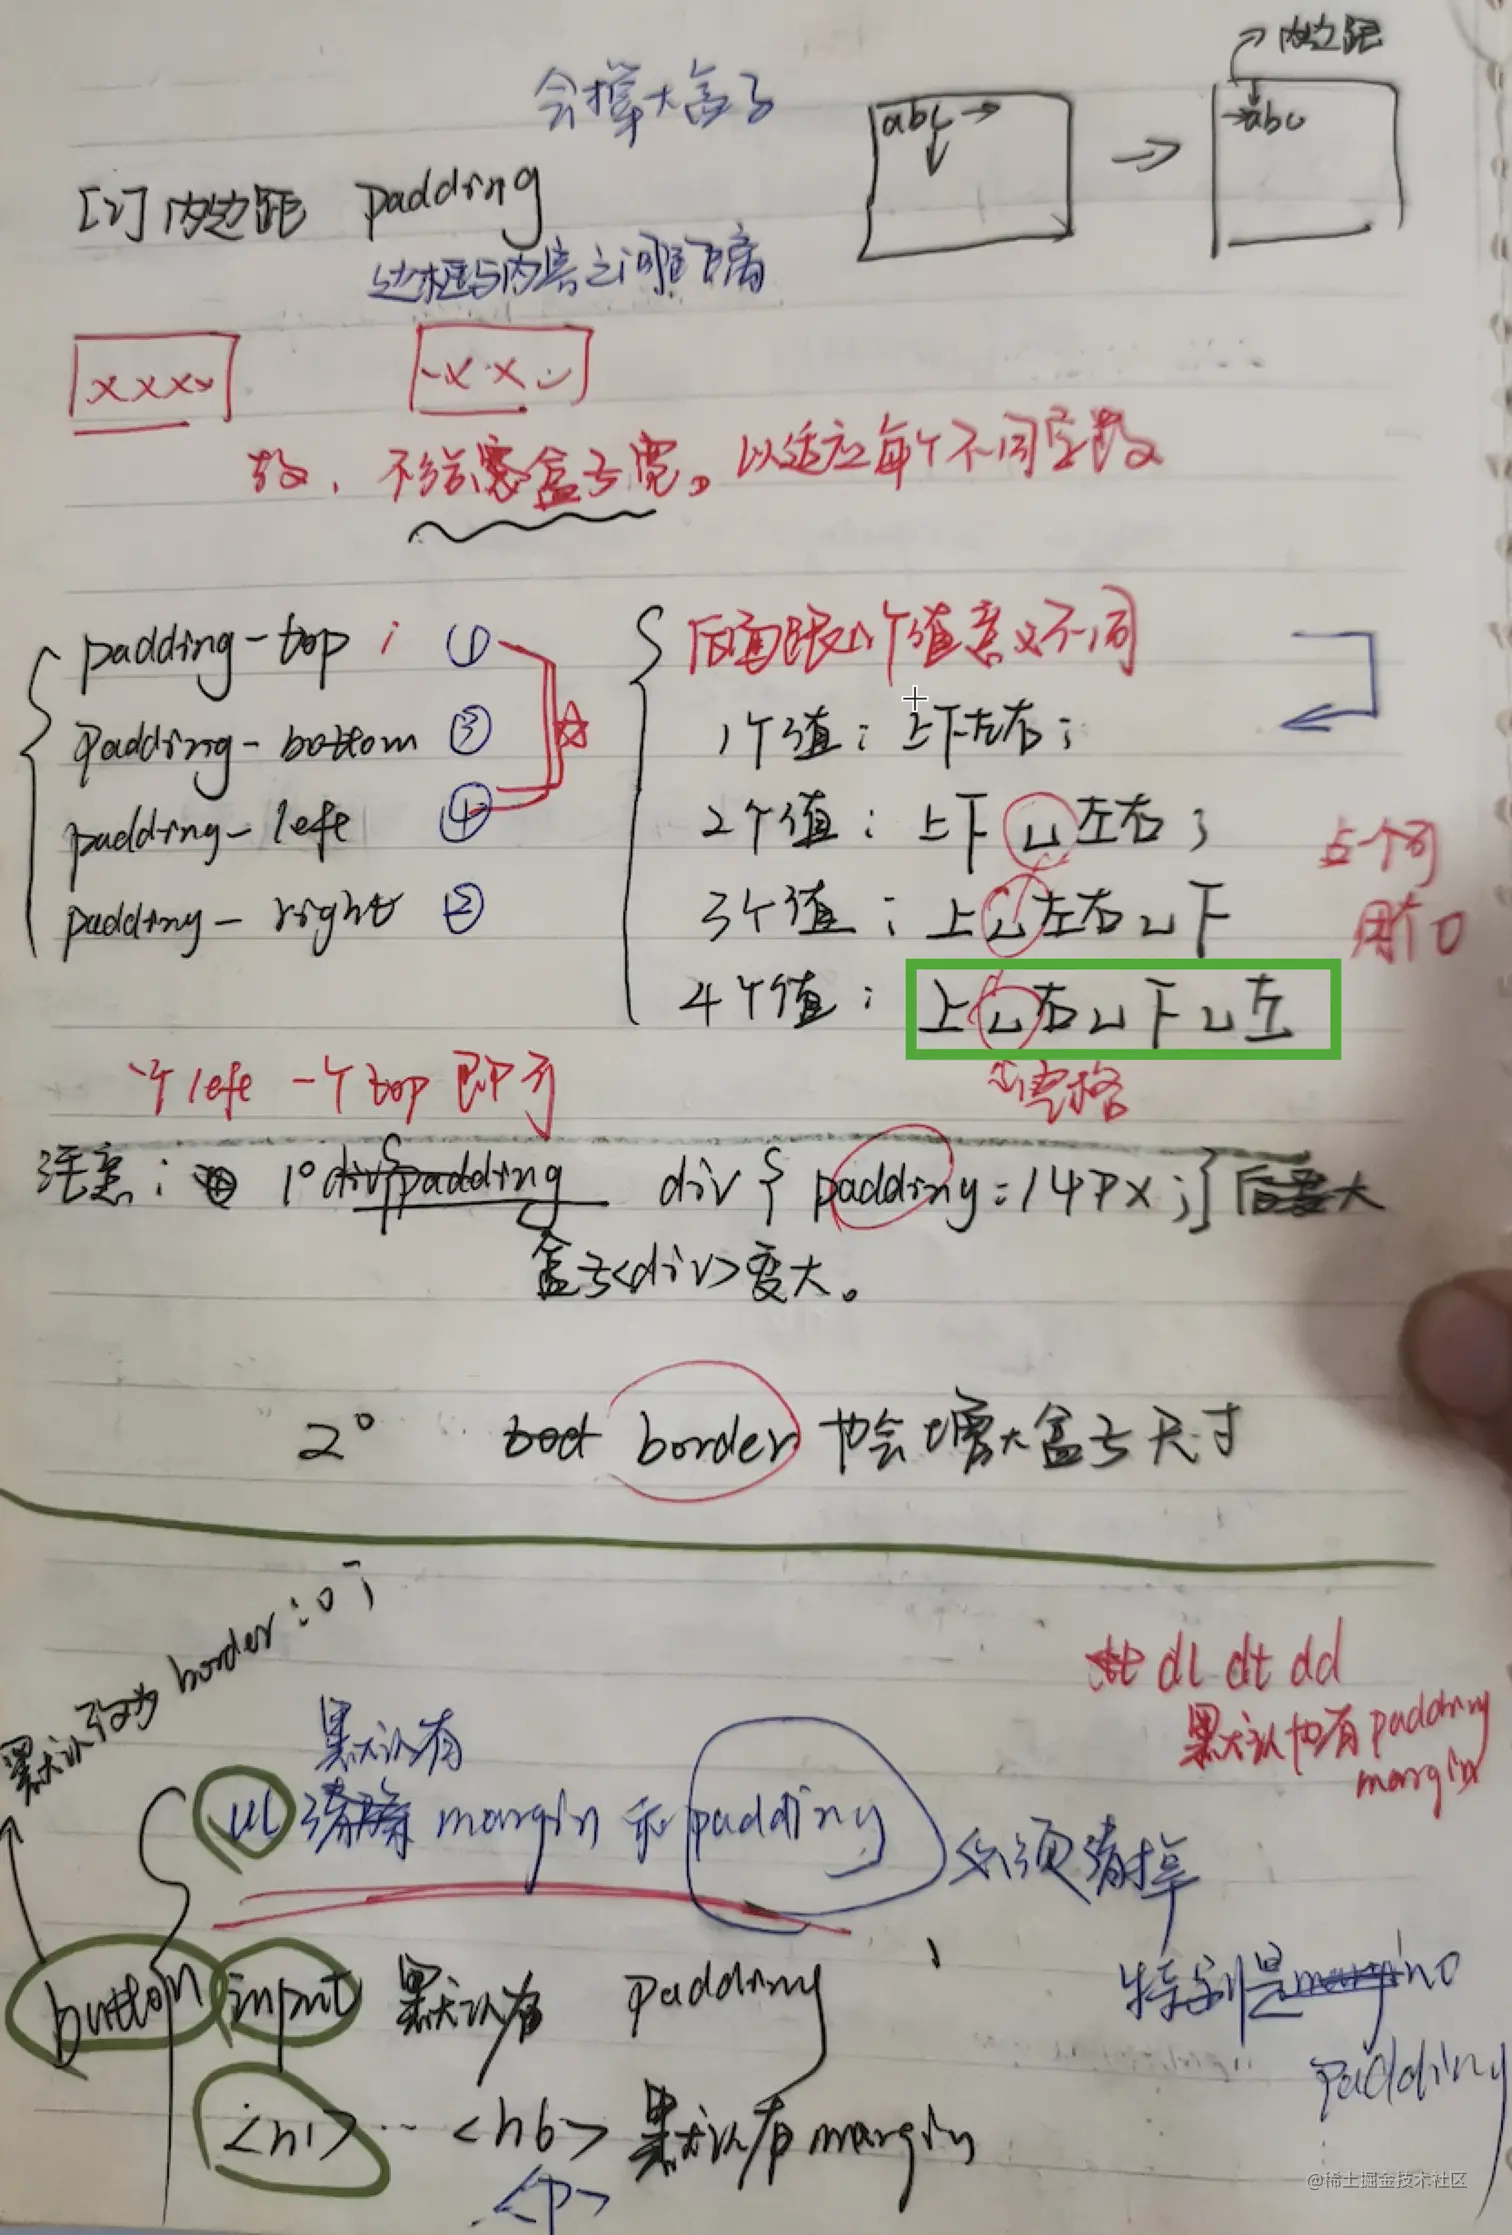 会撑大盒子
内边距
abc
abc
[2]内边距 padding
边框与内容之间距离
xxxx
xx
故、不给盒子宽。以适应每个不同字数
padding-top ; ①
padding-bottom ③
padding-left ④
padding-right ②
后面跟几个值意义不同
1个值: 上下左右;
2个值: 上下 ⊔ 左右;
3个值: 上 ⊔ 左右 ⊔ 下
4个值: 上 ⊔ 右 ⊔ 下 ⊔ 左
空格
一个left 一个top 即可
注意: 1° div{padding div { padding:14px;} 后
盒子<div>变大。
2° border 也会增大盒子尺寸
默认 为 border:0;
dl dt dd
默认也有padding
margin
默认有
ul 清除 margin 和 padding 必须清掉
特别是
padding
button input 默认有 padding
<h1> … <h6> 默认有 margin
<p>
@稀土掘金技术社区